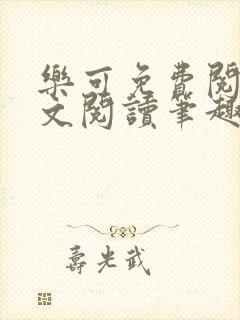 樂可免費閱
文閱讀筆趣
壽光武